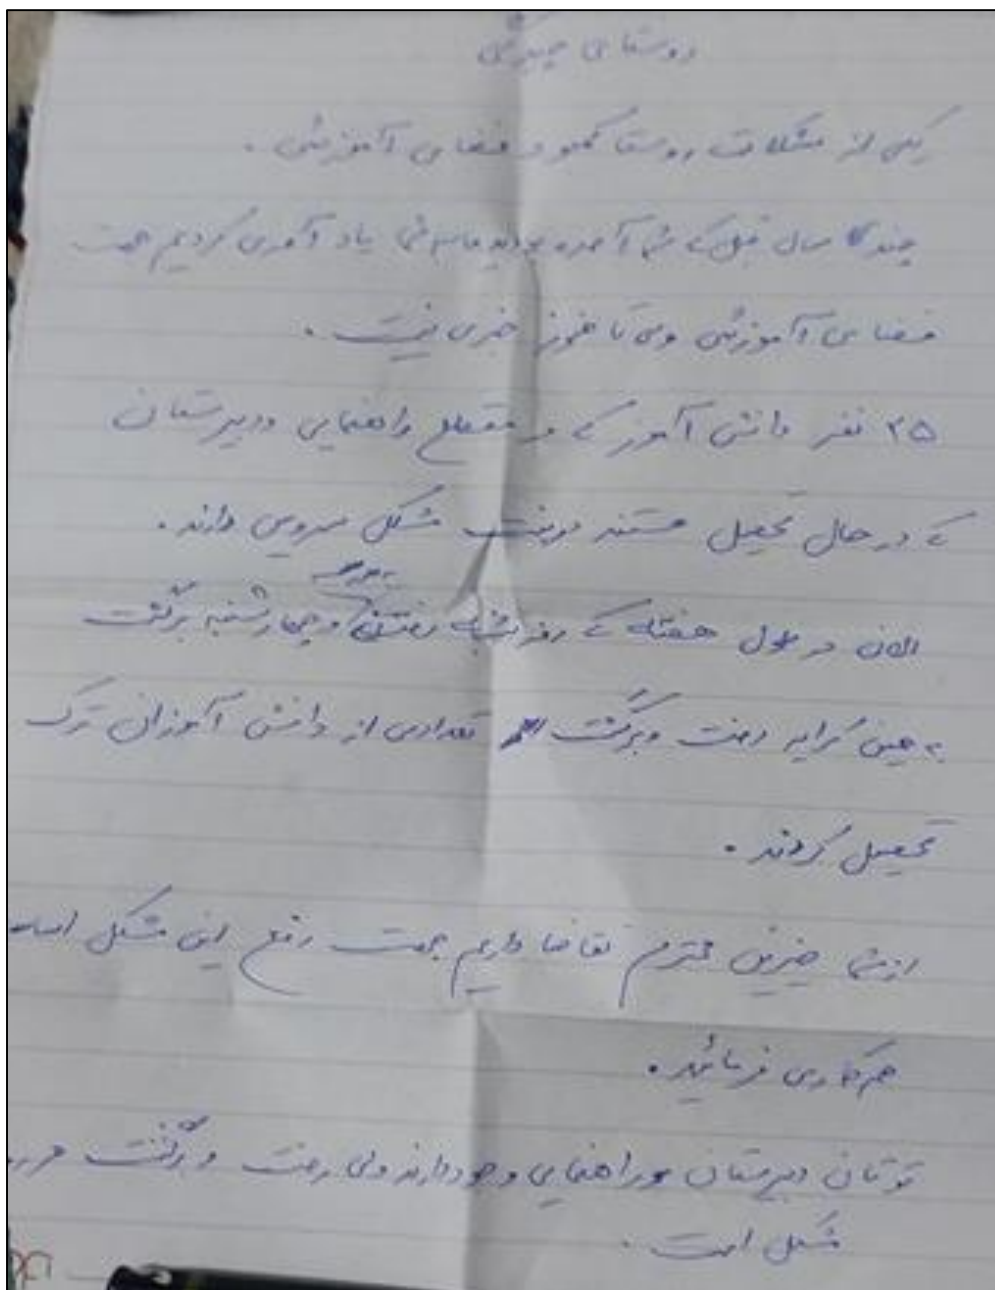 روستای
یکی از مشکلات روستا کمبود فضای آموزشی .
چند سال قبل که شما آمده بودید ما به شما یاد آوری کردیم جهت
فضای آموزشی ولی تا هنوز خبری نیست .
۲۵ نفر دانش آموز که در مقطع راهنمایی و دبیرستان
که در حال تحصیل هستند مشکل سرویس دارند .
الان در طول هفته که روز شنبه رفتن و چهارشنبه برگشت
به همین کرایه رفت و برگشت تعدادی از دانش آموزان ترک
تحصیل کردند .
از شما خیرین محترم تقاضا داریم جهت رفع این مشکل
همکاری فرمائید .
دبیرستان و راهنمایی وجود دارند ولی رفت و برگشت
مشکل است .